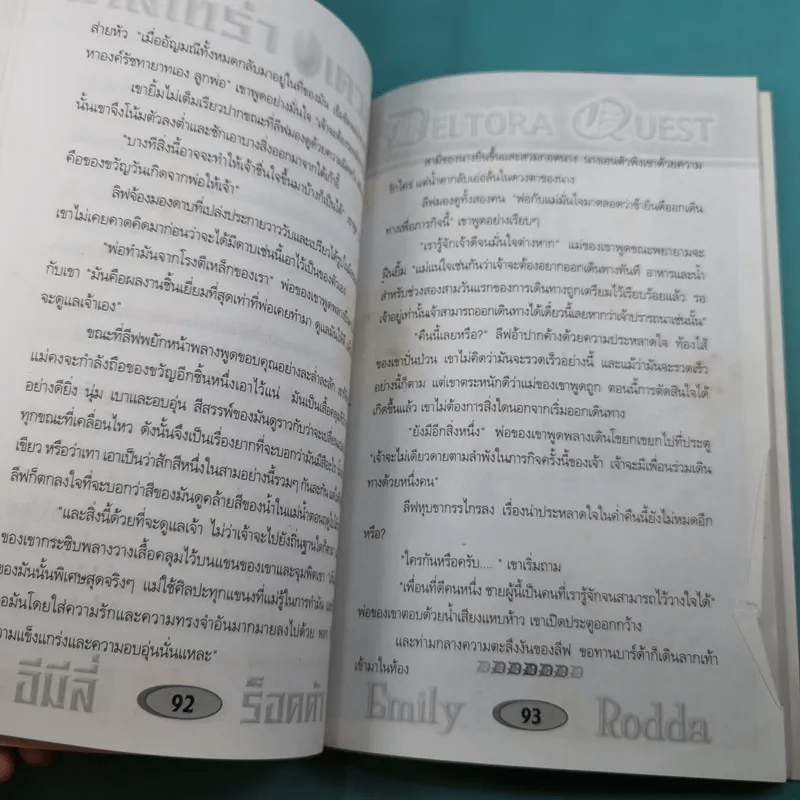 ส่ายหัว "เมื่ออัญมณีทั้งหมดกลับมาอยู่ในที่ของมัน
หาองค์รัชทายาทเอง ลูกพ่อ" เขาพูดอย่างมั่นใจ
เขายิ้มไม่เต็มเรียวปากขณะที่ลีฟมองดูด้วยความ
นั้นเขาจึงโน้มตัวลงต่ำและชักเอาบางสิ่งออกมาจากใต้เก้าอี้
"บางทีสิ่งนี้อาจจะทำให้เจ้าชื่นใจขึ้นมาบ้างก็เป็นได้"
คือของขวัญวันเกิดจากพ่อให้เจ้า"
ลีฟจ้องมองดาบที่เปล่งประกายวาววับและเปรียบได้
เขาไม่เคยคาดคิดมาก่อนว่าจะได้มีดาบเช่นนี้เอาไว้เป็นของตัวเอง
"พ่อทำมันจากโรงตีเหล็กของเรา" พ่อของเขาพูด
กับเขา "มันคือผลงานชิ้นเยี่ยมที่สุดเท่าที่พ่อเคยทำมา ดูแลมันให้ดี
จะดูแลเจ้าเอง"
ขณะที่ลีฟพยักหน้าพลางพูดขอบคุณอย่างละล่ำละลัก
แม่คงจะกำลังถือของขวัญอีกชิ้นหนึ่งเอาไว้แน่ มันเป็นเสื้อคลุม
อย่างดียิ่ง นุ่ม เบาและอบอุ่น สีสรรพ์ของมันดูราวกับว่าจะเปลี่ยน
ทุกขณะที่เคลื่อนไหว ดังนั้นจึงเป็นเรื่องยากที่จะบอกว่ามันมีสีอะไร
เขียว หรือว่าเทา เอาเป็นว่าสักสีหนึ่งในสามอย่างนี้รวมๆ กันละกัน
ลีฟก็ตกลงใจที่จะบอกว่าสีของมันดูคล้ายสีของน้ำในแม่น้ำตอนฤดู
"และสิ่งนี้ด้วยที่จะดูแลเจ้า ไม่ว่าเจ้าจะไปยังถิ่นฐานใดก็ตาม"
ของเขากระซิบพลางวางเสื้อคลุมไว้บนแขนของเขาและจุมพิตเขา
ของมันนั้นพิเศษสุดจริงๆ แม่ใช้ศิลปะทุกแขนงที่แม่รู้ในการทำมัน
อมันโดยใส่ความรักและความทรงจำอันมากมายลงไปด้วย
วามแข็งแกร่งและความอบอุ่นนั่นแหละ"
อีมีลี่ 92 ร็อดด้า
DELTORA QUEST
สามีของนางยืนขึ้นและสวมกอดนาง นางเอนตัวพิงเขาด้วยความ
รักใคร่ แต่น้ำตากลับเอ่อล้นในดวงตาของนาง
ลีฟมองดูทั้งสองคน "พ่อกับแม่มั่นใจมาตลอดว่าข้ายินดีออกเดิน
ทางเพื่อภารกิจนี้" เขาพูดอย่างเรียบๆ
"เรารู้จักเจ้าดีจนมั่นใจต่างหาก" แม่ของเขาพูดขณะพยายามจะ
ฝืนยิ้ม "แม่แน่ใจเช่นกันว่าเจ้าจะต้องอยากออกเดินทางทันที อาหารและน้ำ
สำหรับช่วงสองสามวันแรกของการเดินทางถูกเตรียมไว้เรียบร้อยแล้ว รอ
เจ้าอยู่เท่านั้นเจ้าสามารถออกเดินทางได้เดี๋ยวนี้เลยหากว่าเจ้าปรารถนาเช่นนั้น"
"คืนนี้เลยหรือ?" ลีฟอ้าปากค้างด้วยความประหลาดใจ ท้องไส้
ของเขาปั่นป่วน เขาไม่คิดว่ามันจะรวดเร็วอย่างนี้ และแม้ว่ามันจะรวดเร็ว
อย่างนี้ก็ตาม แต่เขาตระหนักดีว่าแม่ของเขาพูดถูก ตอนนี้การตัดสินใจได้
เกิดขึ้นแล้ว เขาไม่ต้องการสิ่งใดนอกจากเริ่มออกเดินทาง
"ยังมีอีกสิ่งหนึ่ง" พ่อของเขาพูดพลางเดินโขยกเขยกไปที่ประตู
"เจ้าจะไม่เดียวดายตามลำพังในภารกิจครั้งนี้ของเจ้า เจ้าจะมีเพื่อนร่วมเดิน
ทางด้วยหนึ่งคน"
ลีฟหุบขากรรไกรลง เรื่องน่าประหลาดใจในค่ำคืนนี้ยังไม่หมดอีก
หรือ?
"ใครกันหรือครับ...." เขาเริ่มถาม
"เพื่อนที่ดีคนหนึ่ง ชายผู้นี้เป็นคนที่เรารู้จักจนสามารถไว้วางใจได้"
พ่อของเขาตอบด้วยน้ำเสียงแหบห้าว เขาเปิดประตูออกกว้าง
และท่ามกลางความตะลึงงันของลีฟ ขอทานบาร์ด้าก็เดินลากเท้า
เข้ามาในห้อง DDDDDDD
Emily 93 Rodda